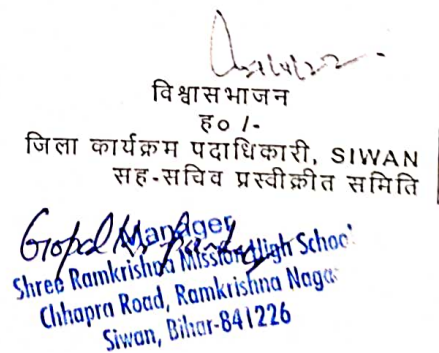 विश्वासभाजन
ह० /-
जिला कार्यक्रम पदाधिकारी, SIWAN
सह-सचिव प्रस्वीक्रीत समिति
Gopal
Manager
Shree Ramkrishna Mission High School
Chhapra Road, Ramkrishna Nagar
Siwan, Bihar-841226